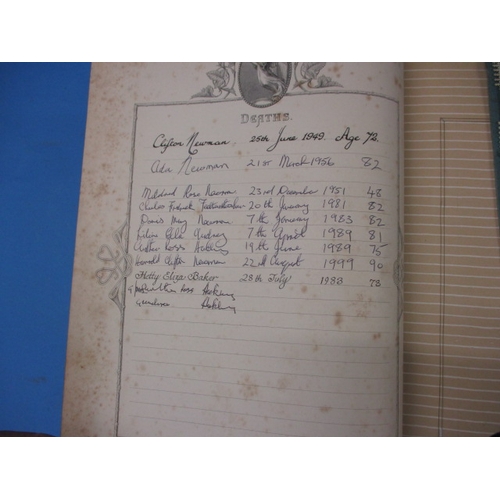 DEATHS.
Clifton Newman. 25th June 1949. Age 72.
Ada Newman 21st March 1956 82
Mildred Rose Newman 23rd December 1951 48
Charles Frank 20th January 1981 82
Doris May Newman 7th January 1983 82
7th April 1989 81
Arthur Ross 19th June 1989 75
Harold Clifton Newman 22nd August 1999 90
Hetty Eliza Baker 28th July 1988 78
Ross